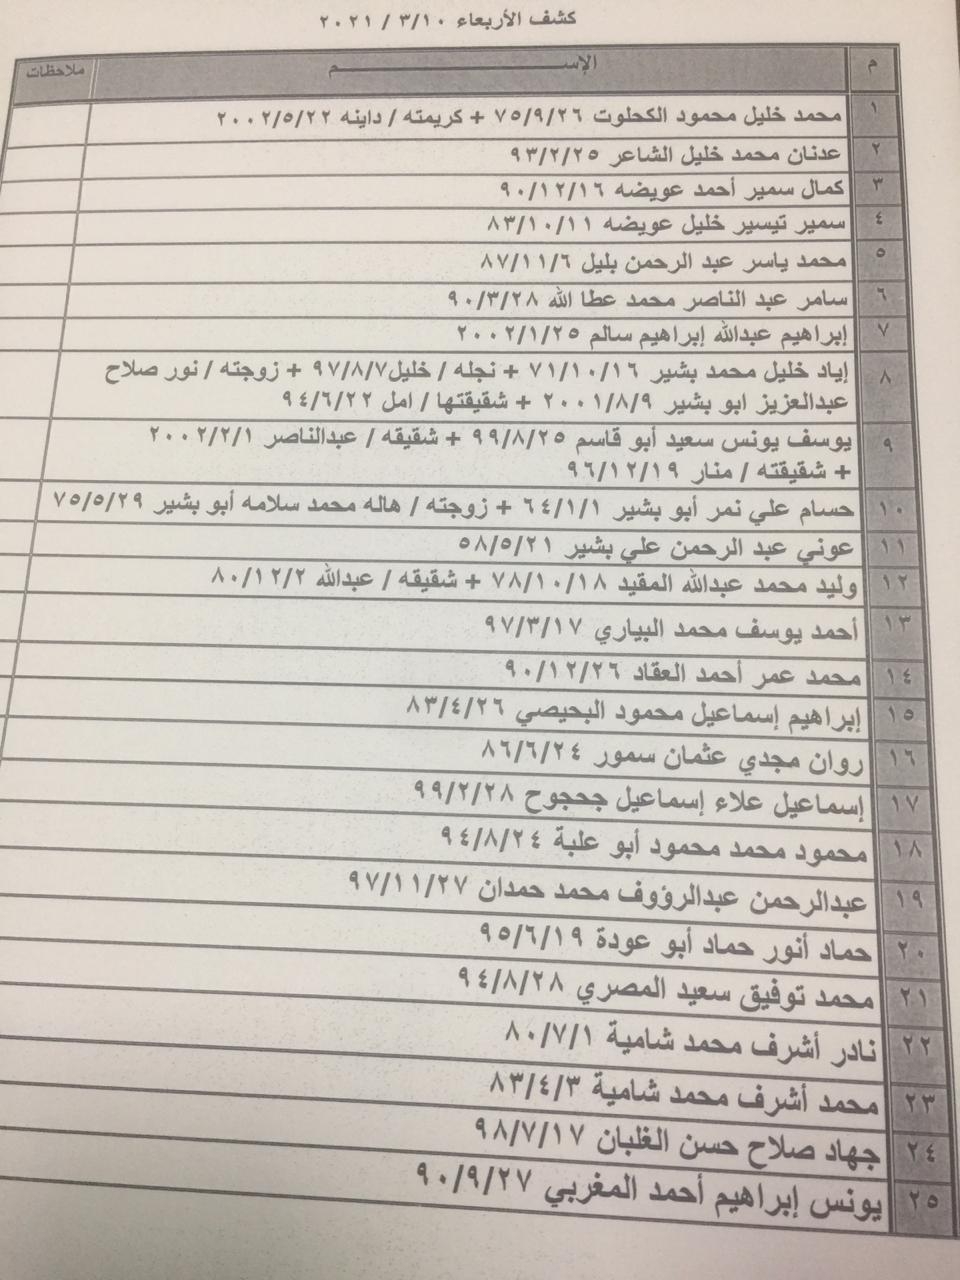 كشف الأربعاء ٣/١٠ / ٢٠٢١
م الإســـــــم ملاحظات
١ محمد خليل محمود الكحلوت ٧٥/٩/٢٦ + كريمته / داينه ٢٠٠٢/٥/٢٢
٢ عدنان محمد خليل الشاعر ٩٣/٢/٢٥
٣ كمال سمير أحمد عويضه ٩٠/١٢/١٦
٤ سمير تيسير خليل عويضه ٨٣/١٠/١١
٥ محمد ياسر عبد الرحمن بليل ٨٧/١١/٦
٦ سامر عبد الناصر محمد عطا الله ٩٠/٣/٢٨
٧ إبراهيم عبدالله إبراهيم سالم ٢٠٠٢/١/٢٥
٨ إياد خليل محمد بشير ٧١/١٠/١٦ + نجله / خليل٩٧/٨/٧ + زوجته / نور صلاح
عبدالعزيز ابو بشير ٢٠٠١/٨/٩ + شقيقتها / امل ٩٤/٦/٢٢
٩ يوسف يونس سعيد أبو قاسم ٩٩/٨/٢٥ + شقيقه / عبدالناصر ٢٠٠٢/٢/١
+ شقيقته / منار ٩٦/١٢/١٩
١٠ حسام علي نمر أبو بشير ٦٤/١/١ + زوجته / هاله محمد سلامه أبو بشير ٧٥/٥/٢٩
١١ عوني عبد الرحمن علي بشير ٥٨/٥/٢١
١٢ وليد محمد عبدالله المقيد ٧٨/١٠/١٨ + شقيقه / عبدالله ٨٠/١٢/٢
١٣ أحمد يوسف محمد البياري ٩٧/٣/١٧
١٤ محمد عمر أحمد العقاد ٩٠/١٢/٢٦
١٥ إبراهيم إسماعيل محمود البحيصي ٨٣/٤/٢٦
١٦ روان مجدي عثمان سمور ٨٦/٦/٢٤
١٧ إسماعيل علاء إسماعيل جحجوح ٩٩/٢/٢٨
١٨ محمود محمد محمود أبو علبة ٩٤/٨/٢٤
١٩ عبدالرحمن عبدالرؤوف محمد حمدان ٩٧/١١/٢٧
٢٠ حماد أنور حماد أبو عودة ٩٥/٦/١٩
٢١ محمد توفيق سعيد المصري ٩٤/٨/٢٨
٢٢ نادر أشرف محمد شامية ٨٠/٧/١
٢٣ محمد أشرف محمد شامية ٨٣/٤/٣
٢٤ جهاد صلاح حسن الغلبان ٩٨/٧/١٧
٢٥ يونس إبراهيم أحمد المغربي ٩٠/٩/٢٧